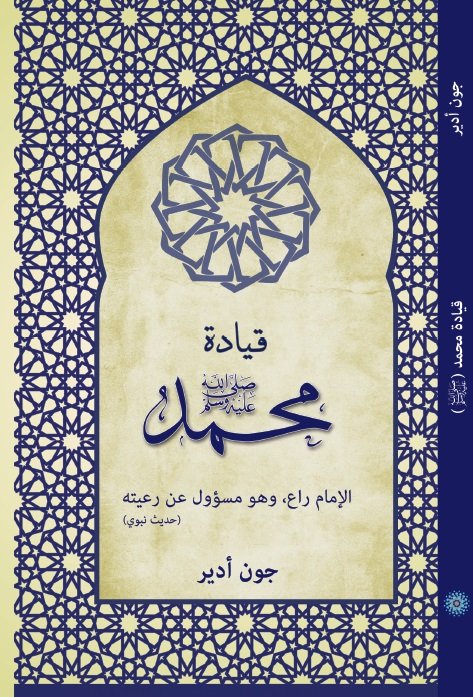 قيادة
محمد صلى الله عليه وسلم
الإمام راع، وهو مسؤول عن رعيته
(حديث نبوي)
جون أدير
جون أدير
قيادة محمد (ﷺ)